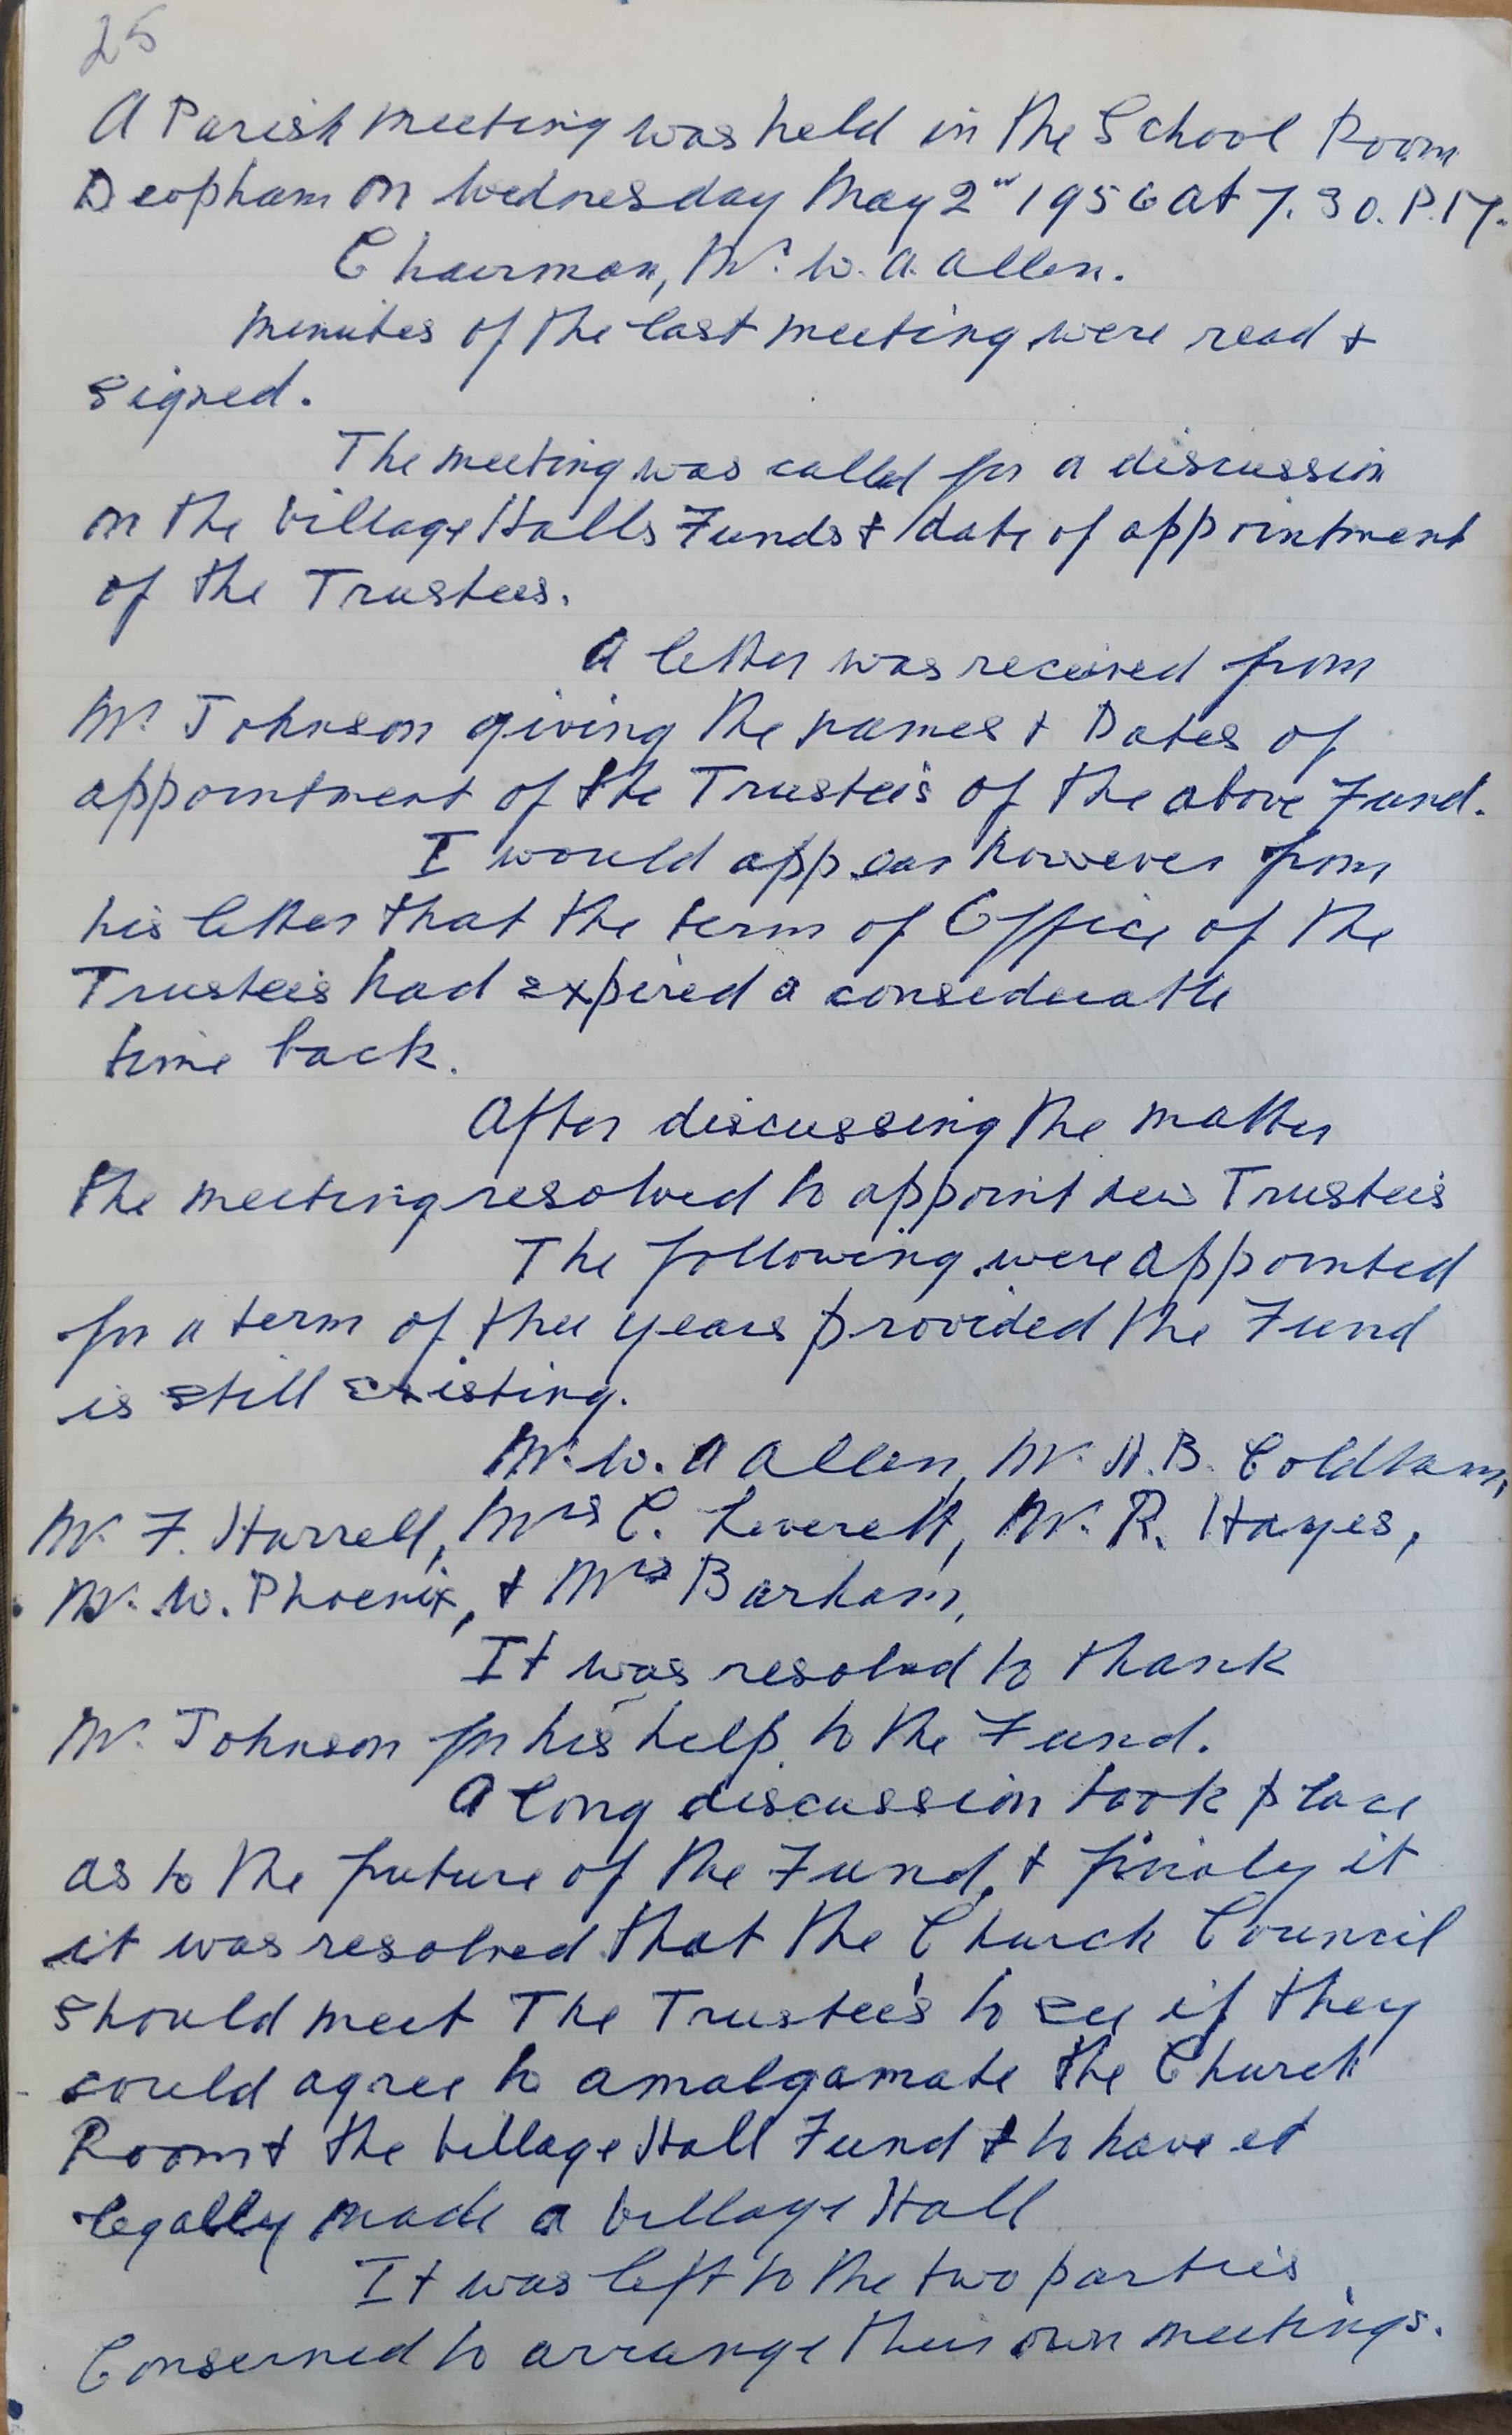 25
A Parish meeting was held in the School Room
Deopham on Wednesday May 2nd 1956 at 7.30. P.M.
Chairman, Mr. W. A. Allen.
Minutes of the last meeting were read &
signed.
The meeting was called for a discussion
on the Village Halls Funds & date of appointment
of the Trustees.
A letter was received from
Mr Johnson giving the names & Dates of
appointment of the Trustees of the above Fund.
I would appear however from
his letter that the term of Office of the
Trustees had expired a considerable
time back.
After discussing the matter
the meeting resolved to appoint new Trustees
The following were appointed
for a term of three years provided the Fund
is still existing.
Mr. W. A Allen, Mr. H. B. Coldham,
Mr. F. Harrell, Mrs C. Leverett, Mr. R. Hayes,
Mr. W. Phoenix, & Mrs Barham,
It was resolved to thank
Mr. Johnson for his help to the Fund.
A long discussion took place
as to the future of the Fund, & finaly it
it was resolved that the Church Council
should meet The Trustees to see if they
could agree to amalgamate the Church
Room & the Village Hall Fund & to have it
legally made a Village Hall
It was left to the two parties
Conserned to arrange their own meetings.